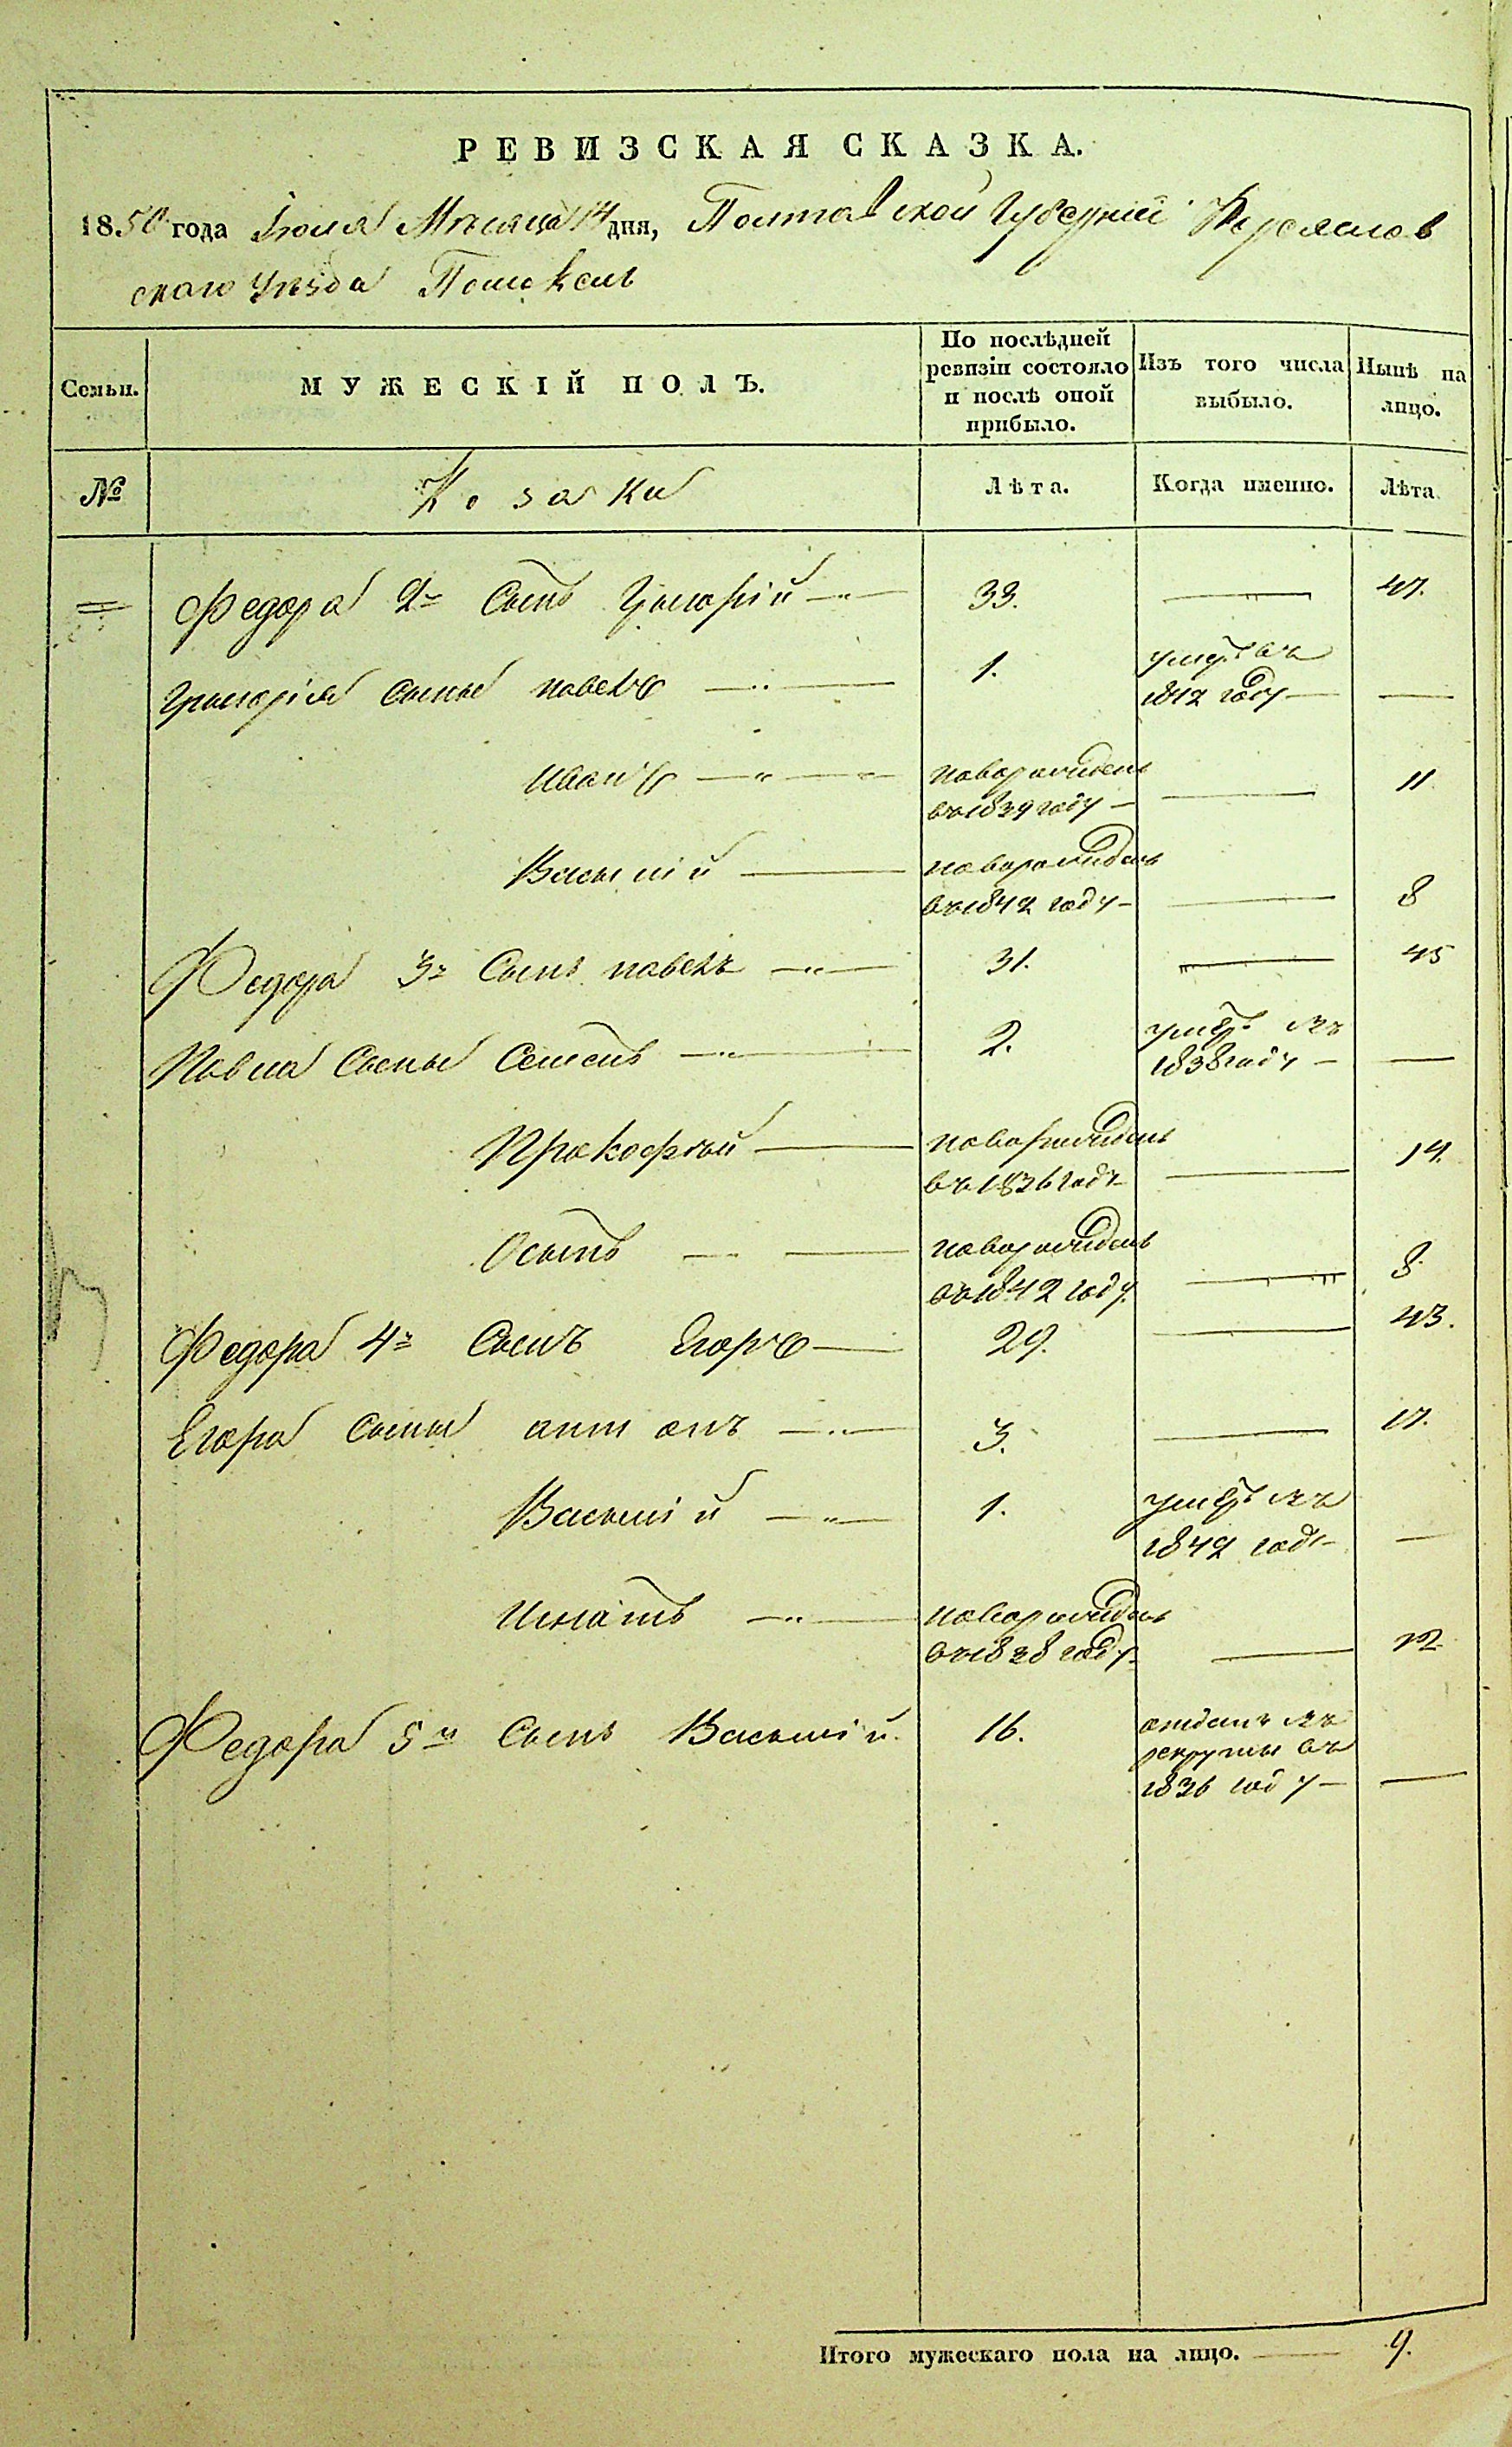 РЕВИЗСКАЯ СКАЗКА.
1850 года Іюля Мѣсяца 14 дня, Полтавской Губерніи Переяслов
скаго Уѣзда
Семьи.
МУЖЕСКІЙ ПОЛЪ.
По послѣдней
ревизіи состояло
и послѣ оной
прибыло.
Изъ того числа
выбыло.
Нынѣ на
лицо.
№
Козаки
Лѣта.
Когда именно.
Лѣта
Федора 2й Сынъ Григорій 33. 47.
Григорія Сыны павелъ 1. умеръ въ
1842 году
Иванъ новорожденъ
въ 1839 году 11
Василій новорожденъ
въ 1842 году 8
Федора 3й Сынъ павелъ 31. 45
Павла Сыны Семенъ 2. умеръ въ
1838 году
Прокофій новорожденъ
въ 1836 годъ 14.
Осипъ новорожденъ
въ 1842 году 8.
Федора 4й Сынъ Егоръ 29. 43.
Егора Сыны антонъ 3. 17.
Василій 1. умеръ въ
1842 году
Игнатъ новорожденъ
въ 1838 году 12
Федора 5й Сынъ Василій. 16. отданъ въ
рекруты въ
1836 году
Итого мужескаго пола на лицо. 9.